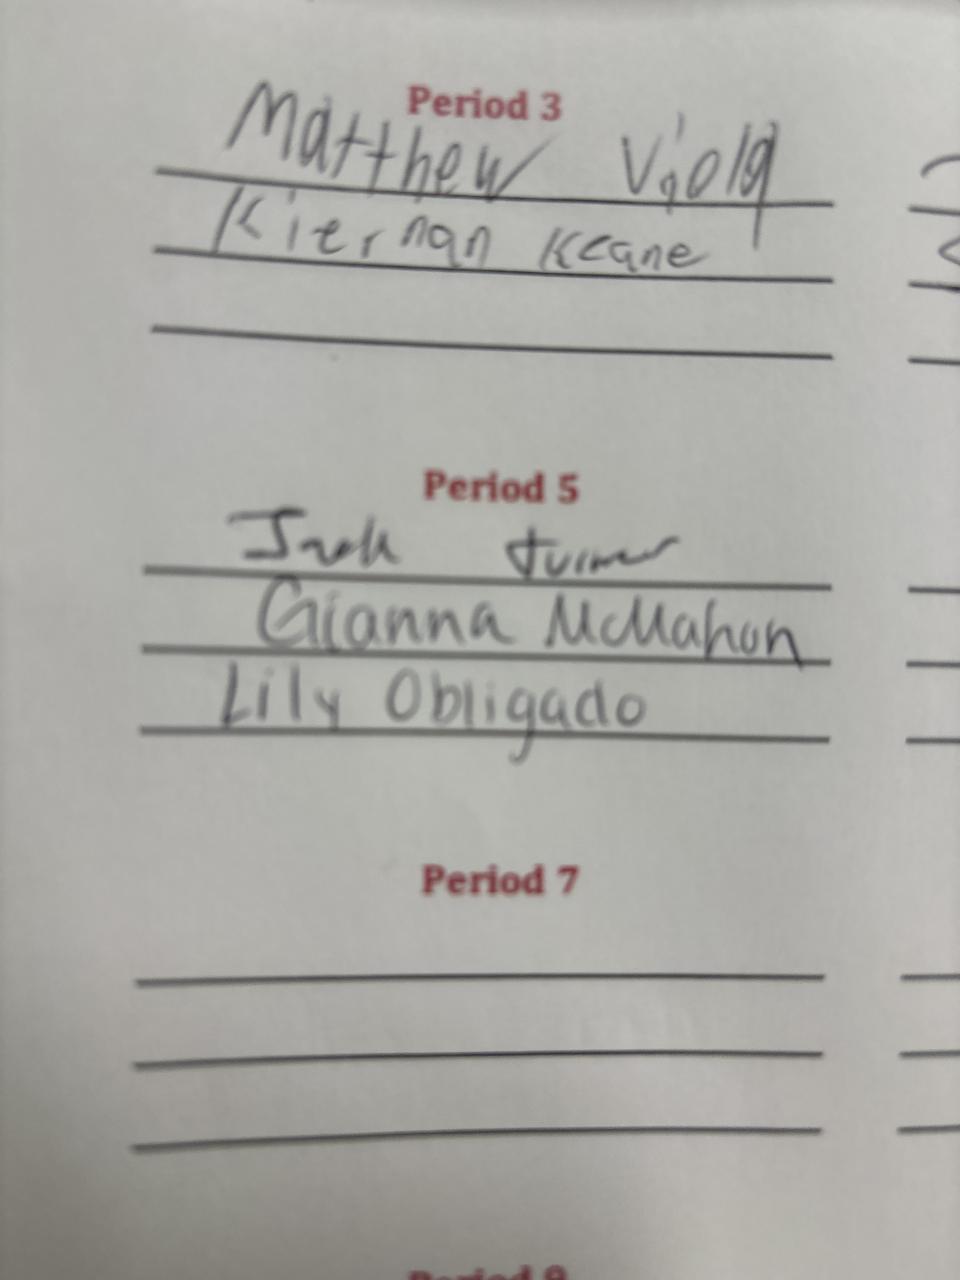 Period 3
Matthew Viola
Kiernan Keane
Period 5
Jack turner
Gianna McMahon
Lily Obligado
Period 7
Period 9